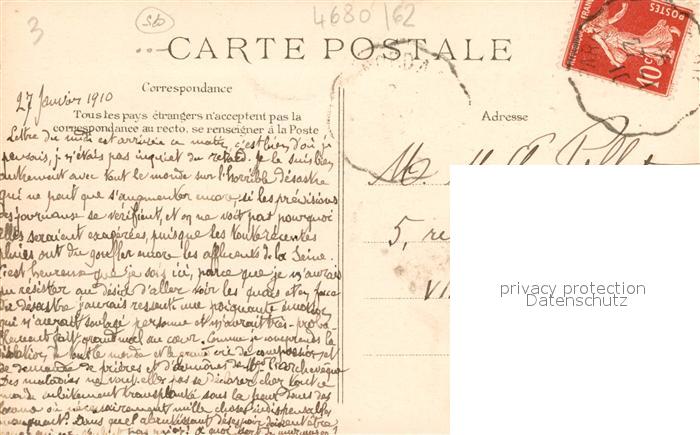 3
Sb
4680/62
CARTE POSTALE
POSTES
10c
Correspondance
27 Janvier 1910
Tous les pays étrangers n'acceptent pas la
correspondance au recto, se renseigner à la Poste
Adresse
Lettre du midi est arrivée ce matin, c'est bien d'où je
pensais, je n'étais pas inquiet du retard. Je le suis bien
autrement avec tout le monde sur l'horrible désastre
qui ne peut que s'augmenter encore, si les prévisions
des journaux se vérifient, et on ne voit pas pourquoi
elles seraient exagérées, puisque les toutes récentes
pluies ont dû gonfler encore les affluents de la Seine.
C'est heureux que je sois ici, parce que je n'aurais
pu résister au désir d'aller voir les quais et en face
du désastre j'aurais ressenti une poignante
qui n'aurait soulagé personne et m'aurait très-proba-
blement fait grand mal au coeur. Comme je comprends la
de tout le monde et le grand cri de compassion et
de demande de prières et d'aumônes de Mgr l'Archevêque
Des maladies ne vont-elles pas se déclarer chez tout ce
monde subitement transplanté sous la peur dans des
locaux où nécessairement mille choses indispensables
manquent? Dans quel abrutissant désespoir doivent être
M.
5, r
VI
privacy protection
Datenschutz